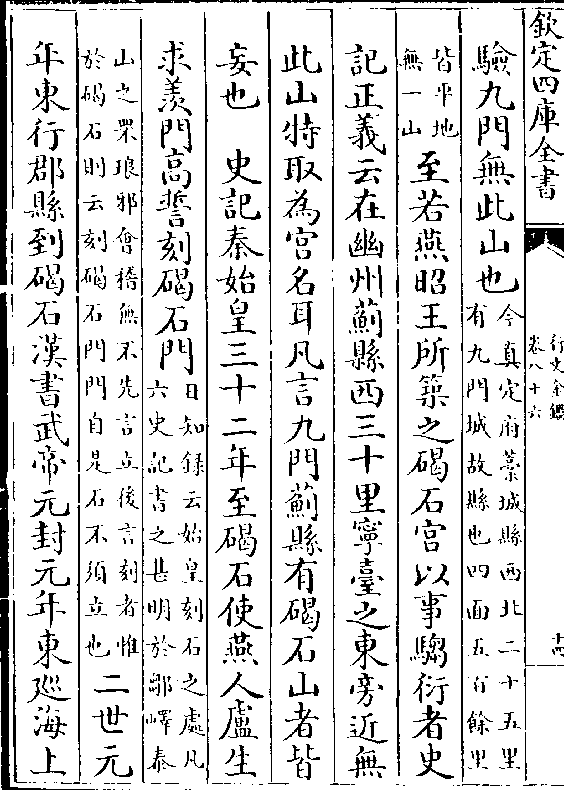 欽定四庫全書
行水金鑑
卷八十六
十四
驗九門無此山也今真定府藁城縣西北二十五里
有九門城故縣也四面五百餘里
皆平地
無一山至若燕昭王所築之碣石宮以事騶衍者史
記正義云在幽州薊縣西三十里寧臺之東旁近無
此山特取為宮名耳凡言九門薊縣有碣石山者皆
妄也 史記秦始皇三十二年至碣石使燕人盧生
求羨門高誓刻碣石門日知錄云始皇刻石之處凡
六史記書之甚明於鄒嶧泰
山之罘琅邪會稽無不先言立後言刻者惟
於碣石則云刻碣石門門自是石不須立也二世元
年東行郡縣到碣石漢書武帝元封元年東廵海上